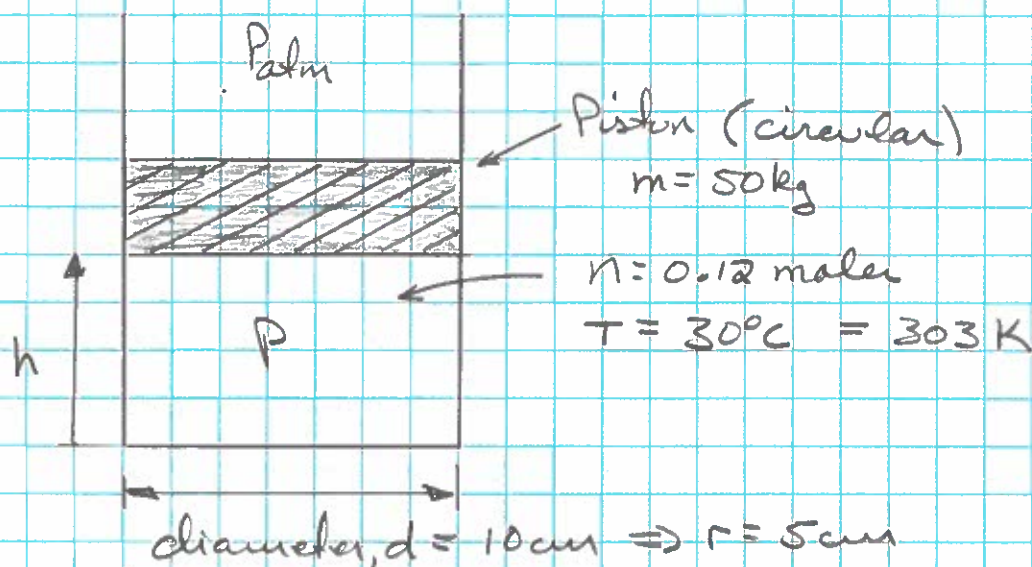 Patm
Piston (circular)
m = 50kg
n = 0.12 moles
T = 30°C = 303 K
P
h
diameter, d = 10cm ⇒ r = 5cm